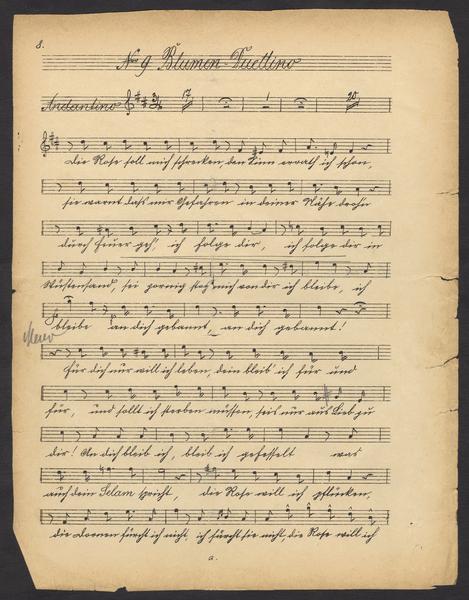 8.
No 9 Blumen-Duettino
Andantino 17 1 20
Die Rose soll mich schrecken, den Sinn errath ich schon,
sie warnt dass mir Gefahren in deiner Nähe drohn
durch Feuer geh', ich folge dir, ich folge dir in
Wüstensand, sei zornig stoß mich von dir ich bleibe, ich
bleibe an dich gebannt, an dich gebannt!
für dich nur will ich leben, dein bleib' ich für und
für, und sollt ich sterben müssen, sei's nur aus Lieb zu
dir! An dich bleib ich, bleib ich gefesselt was
auch dein Selam spricht, die Rose will ich pflücken,
die Dornen fürcht ich nicht, ich fürcht sie nicht, die Rose will ich
a.